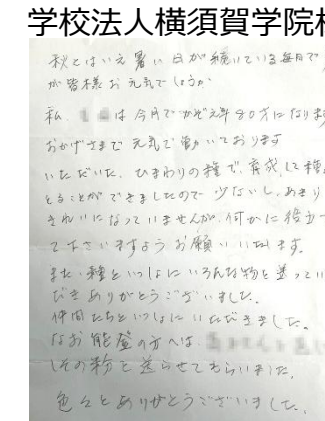 学校法人横須賀学院
秋とはいえ暑い日が続いている毎日で
が皆様お元気でしょうか
私、は今月でかぞえ年80才になりま
おかげさまで元気で働いております
いただいた、ひまわりの種で、育成して種
とることができましたので少ないし、あまり
きれいになっていませんが、何かに役立
て下さいますようお願いいたします。
また、種といっしょにいろんな物を送ってい
だきありがとうございました。
仲間たちといっしょにいただきました。
なお能登の方へは、
しその粉を送らせてもらいました。
色々とありがとうございました。